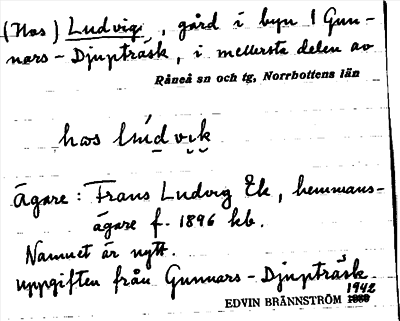 (Hos) Ludvig, gård i byn 1 Gun-
nars-Djupträsk, i mellersta delen av
Råneå sn och tg, Norrbottens län
hos lúdvik
Ägare: Frans Ludvig Ek, hemmans-
ägare f. 1896 hb.
Namnet är nytt.
uppgiften från Gunnars-Djupträsk
1942
EDVIN BRÄNNSTRÖM